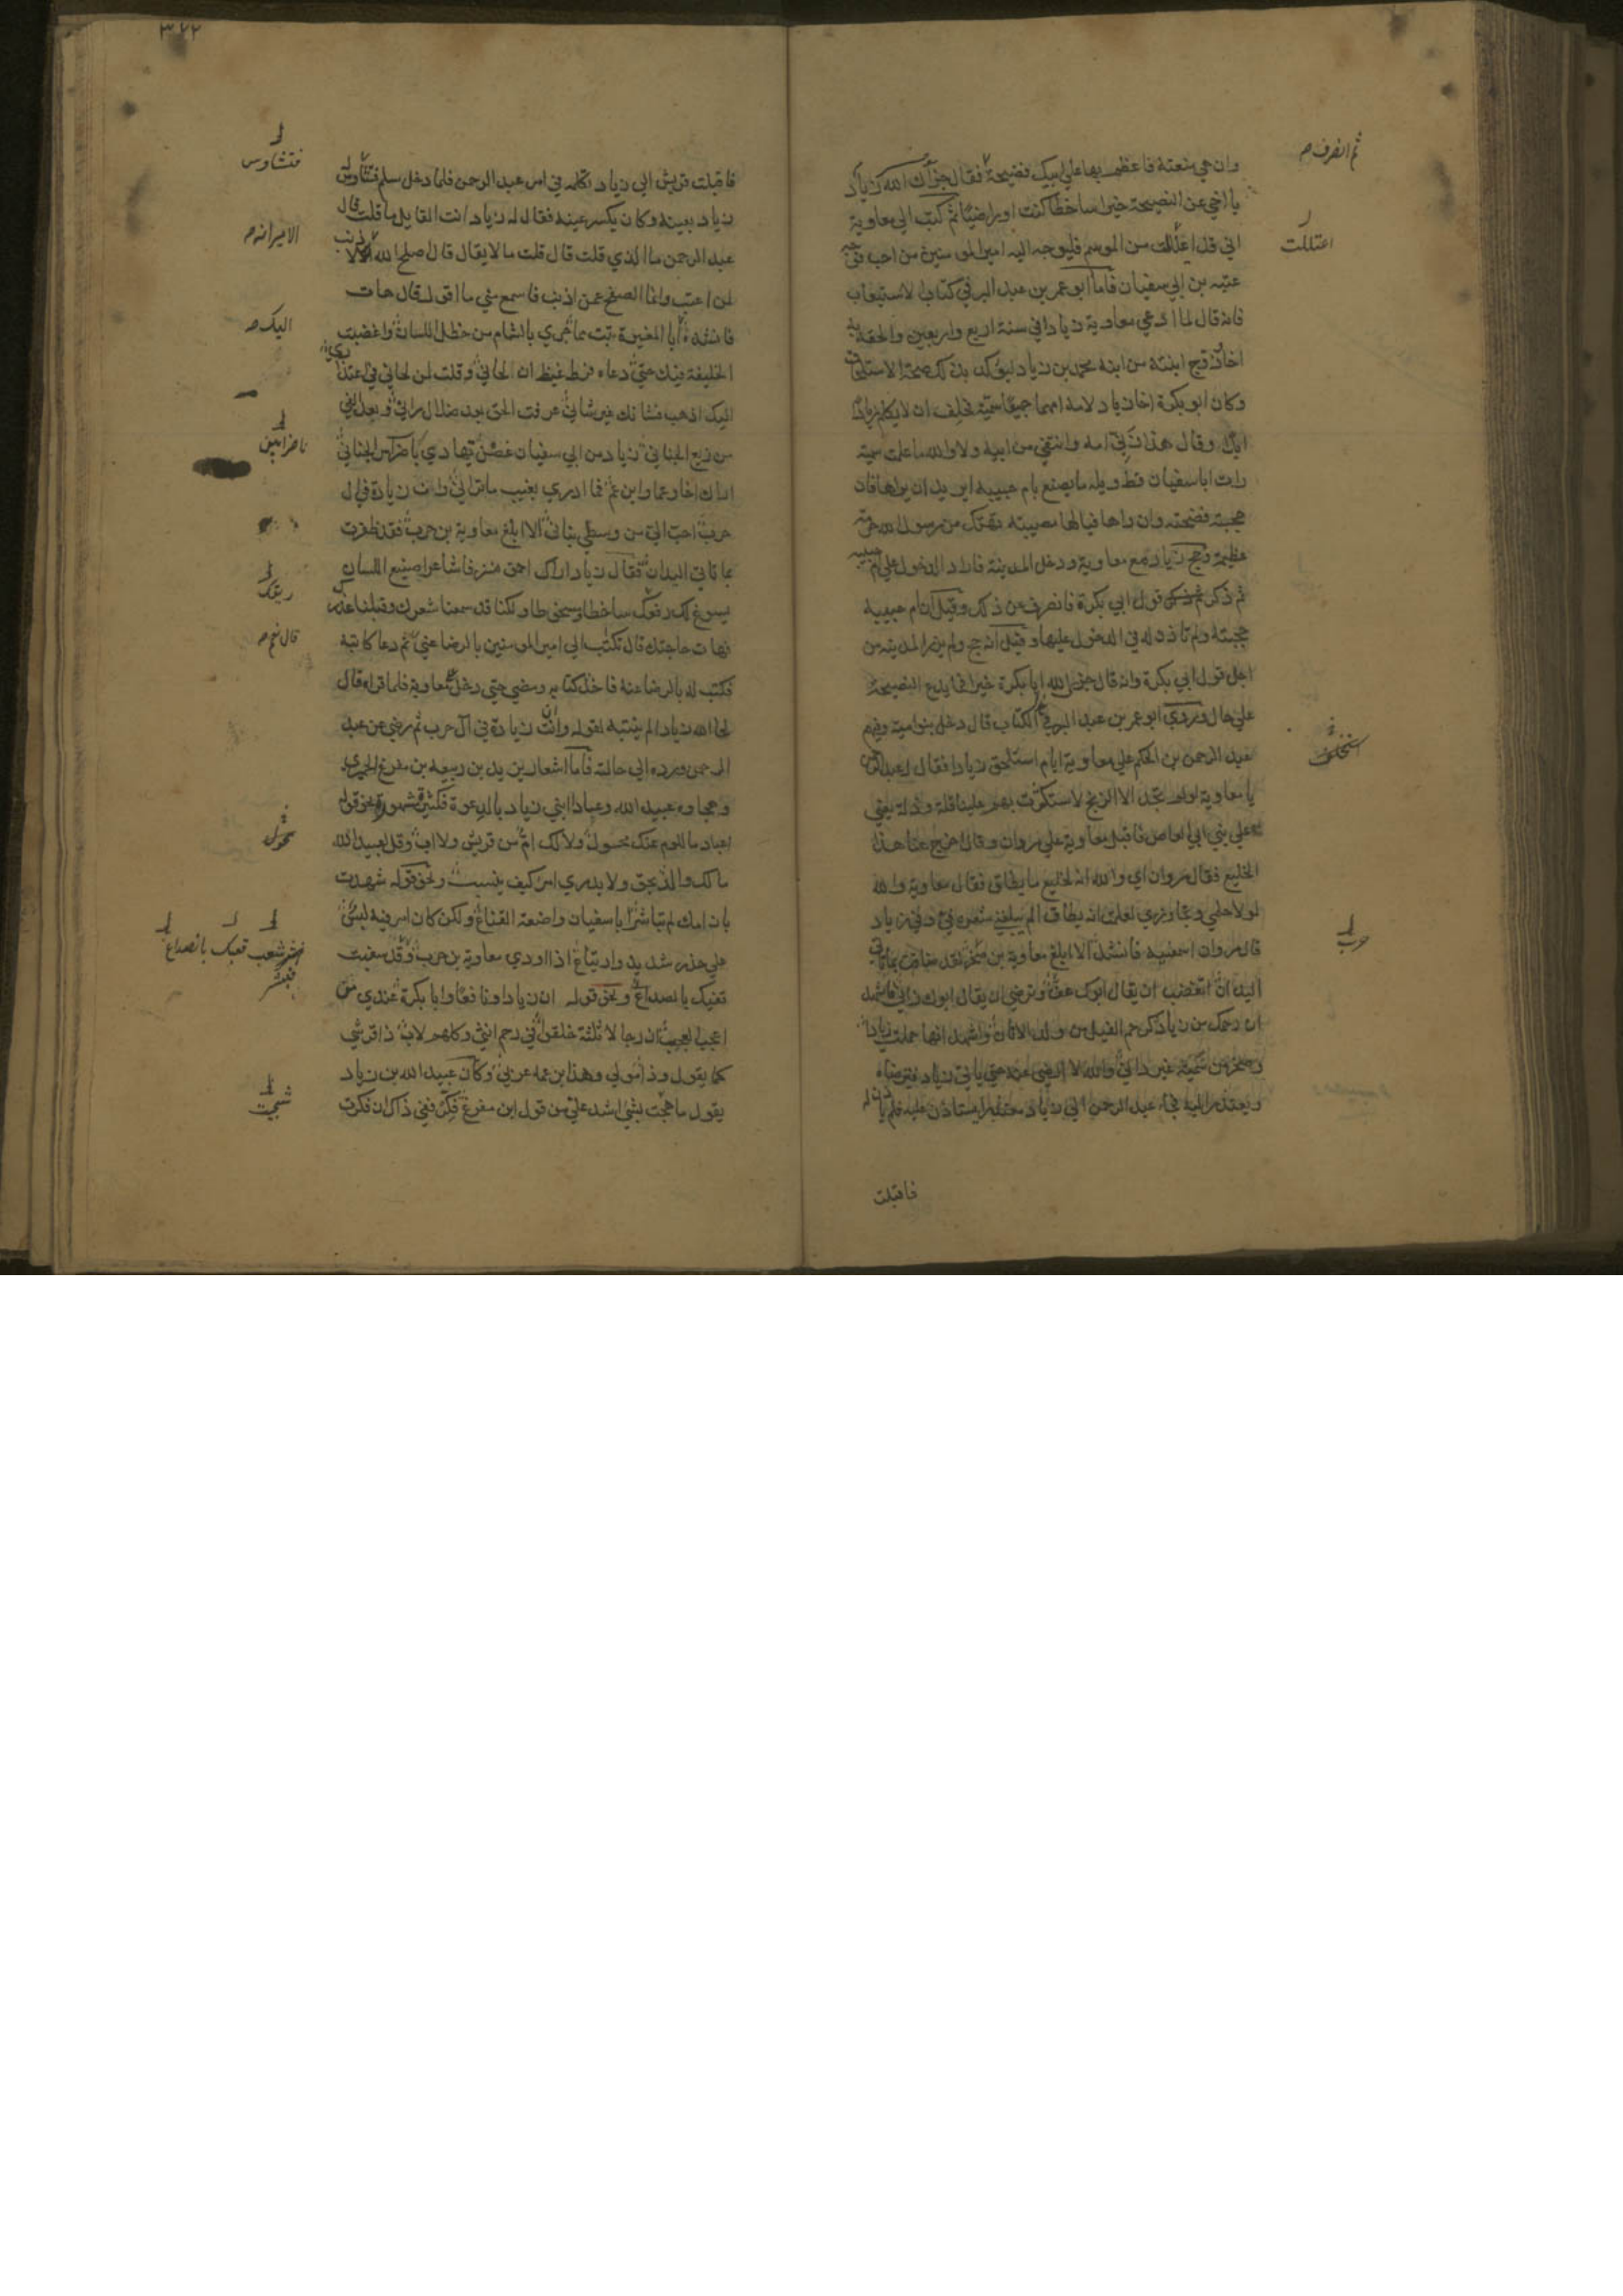 وان هي منعته فاعظم بها على ابيك فضيحة فقال جزاك الله زياد
يا اخي عن النصيحة خيرا ساخطا كنت او راضيا ثم كتب الى معاوية
اني قد اعتللت من الموسم فليوجه اليه امير المومنين من احب فوجه
عتبه بن ابي سفيان فاما ابو عمر بن عبد البر في كتاب الاستيعاب
فانه قال لما ادعي معاوية زيادا في سنة اربع واربعين والحقه به
اخا زوج ابنته من ابنه محمد بن زياد ليؤكد بذلك صحة الاستلحاق
وكان ابو بكرة اخا زياد لامه امهما جميعا سمية فحلف ان لا يكلم زيادا
ابدا وقال هذا زني امه وانتفي من ابيه ولا والله ما علمت سمية
رات ابا سفيان قط ويله ما يصنع بام حبيبه ايريد ان يراها فان
حجبته فضحته وان راها فيالها مصيبته تهتك من رسول الله حرمة
عظيمة وحج زياد مع معاوية ودخل المدينة فاراد الدخول على ام حبيبه
ثم ذكر قول ابي بكرة فانصرف عن ذلك وقيل ان ام حبيبه
حجبته ولم تاذن له في الدخول عليها وقيل انه حج ولم يزر المدينه من
اجل قول ابي بكرة وانه قال جزى الله ابا بكرة خيرا فما يدع النصيحة
على حال وروي ابو عمر بن عبد البر في الكتاب قال دخل بنو امية وفيهم
عبد الرحمن بن الحكم على معاوية ايام استلحق زيادا فقال له عبد الرحمن
يا معاوية لو لم تجد الا الزنج لاستكثرت بهم علينا قلة وذلة يعني
على بني ابي العاص فاقبل معاوية على مروان وقال اخرج عنا هذا
الخليع فقال مروان اي والله انه لخليع ما يطاق فقال معاوية والله
لولا حلمي وتجاوزي لعلمت انه يطاق الم يبلغني شعره في وفي زياد
قال مروان اسمعنيه فانشد الا ابلغ معاوية بن صخر لقد ضاقت بما تاتي
اليدان اتغضب ان يقال ابوك عف وترضي ان يقال ابوك زاني فاشهد
ان رحمك من زياد كرحم الفيل من ولد الاتان واشهد انها حملت زيادا
وصخر من سمية غير داني والله لا ارضى عنه حتى ياتي زياد فيترضاه
ويعتذر اليه فجاء عبد الرحمن الى زياد معتذرا يستاذن عليه فلم ياذن له
فاقبلت
ثم انصرف صح
اعتللت
حرب
فاقبلت قريش الى زياد تكلمه في امر عبد الرحمن فلما دخل سلم فتشاوس
زياد بعينه وكان يكسر عينه فقال له زياد انت القايل ما قلت قال
عبد الرحمن ما الذي قلت قال قلت ما لا يقال قال اصلح الله لا ذنب
لمن اعتب وانما الصفح عمن اذنب فاسمع مني ما اقول قال هات
فانشده ابا المغيرة تبت مما جري بالشام من خطل اللسان واغضبت
الخليفة فيك حتى دعاه فرط غيظ ان لحاني وقلت لمن لحاني في اعتذاري
اليك اذهب فشانك غير شاني عرفت الحق بعد ضلال رايي وبعد الغي
من زيغ الجناني زياد من ابي سفيان غصن تهادي ناضرا بين الجناني
اراك اخا وعما وابن عم فما ادري بغيب ما تراني وانت زيادة في ال
حرب احب الي من وسطي بناني الا ابلغ معاوية بن حرب فقد ظفرت
بما تاتي اليدان فقال زياد اراك احمق مترفا شاعرا صنيع اللسان
يسوغ لك ريقك ساخطا ومسخوطا ولكنا قد سمعنا شعرك وقبلنا عذرك
فهات حاجتك قال تكتب الى امير المومنين بالرضا عني ثم دعا كاتبه
فكتب له بالرضا عنه فاخذ كتابه ومضي حتى دخل على معاوية فلما قراه قال
لحا الله زيادا لم ينتبه لقوله وانت زيادة في ال حرب ثم رضي عن عبد
الرحمن ورده الى حالته فاما اشعار يزيد بن ربيعه بن مفرغ الحميري
وهجاوه عبيد الله وعبادا ابني زياد بالدعوة فكثيرة مشهورة نحو قوله
اعباد ما للوم عنك محول ولا لك ام من قريش ولا اب وقل لعبيد الله
ما لك والد بحق ولا يدري امرؤ كيف ينسب ونحو قوله شهدت
بان امك لم تباشر ابا سفيان واضعة القناع ولكن كان امر فيه لبس
على حذر شديد وارتياع اذا اودي معاوية بن حرب
ونحو قوله ان زيادا ونافعا وابا بكرة عندي من
اعجب العجب ان رجالا ثلثة خلقوا في رحم انثي وكلهم لاب ذا قرشي
كما يقول وذا مولي وهذا بن عمه عربي وكان عبيد الله بن زياد
يقول ما هجيت بشئ اشد علي من قول ابن مفرغ فكر ففي ذاك ان فكرت
فتشاوس
الامير انه صح
اليك صح
ناضرا بين
ريقك
قال نعم صح
محول
فبشر شعب قعبك بانصداع
شجيت
٣٧٢